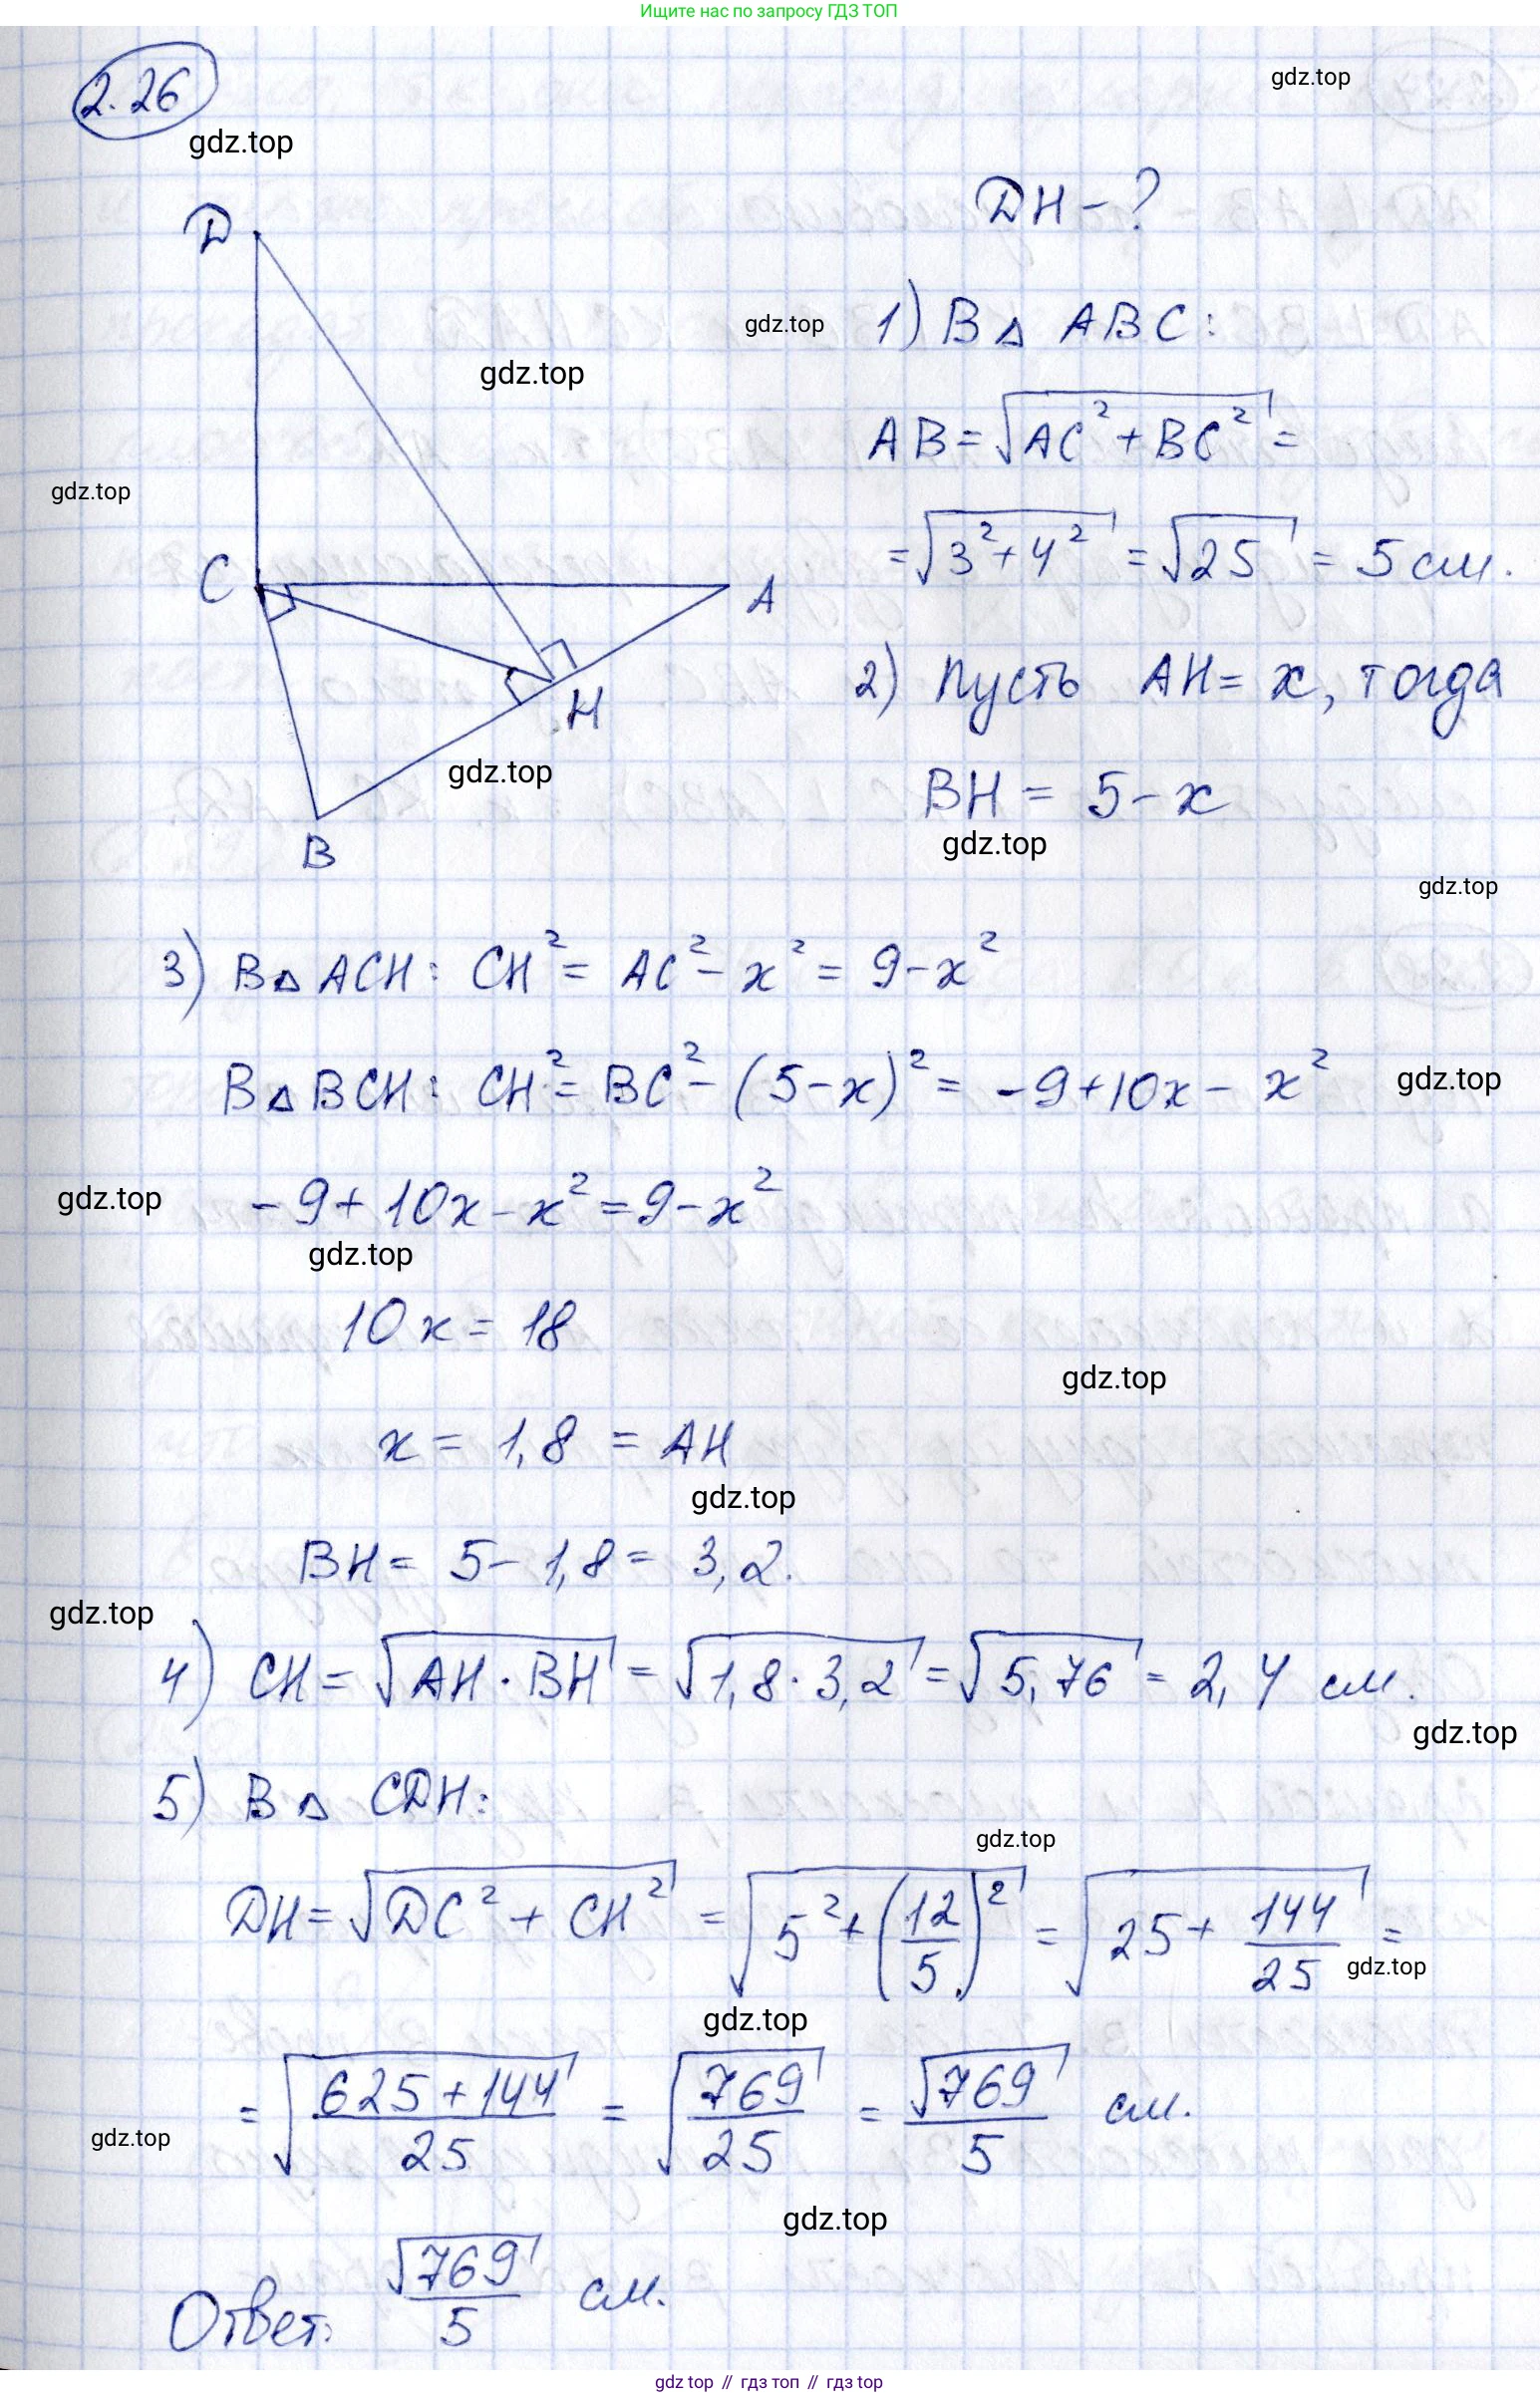 Ищите нас по запросу ГДЗ ТОП
2.26
gdz.top
gdz.top
D
DH - ?
gdz.top
1) В △ ABC:
gdz.top
AB = √(AC² + BC²) =
gdz.top
= √(3² + 4²) = √25 = 5 см.
C
A
2) Пусть AH = x, тогда
H
gdz.top
BH = 5 - x
B
gdz.top
gdz.top
3) В △ ACH: CH² = AC² - x² = 9 - x²
В △ BCH: CH² = BC² - (5 - x)² = -9 + 10x - x²
gdz.top
-9 + 10x - x² = 9 - x²
gdz.top
gdz.top
10x = 18
gdz.top
x = 1,8 = AH
gdz.top
BH = 5 - 1,8 = 3,2.
gdz.top
4) CH = √(AH · BH) = √(1,8 · 3,2) = √5,76 = 2,4 см.
gdz.top
5) В △ CDH:
gdz.top
DH = √(DC² + CH²) = √(5² + (12/5)²) = √(25 + 144/25) =
gdz.top
gdz.top
= √((625 + 144)/25) = √(769/25) = √769/5 см.
gdz.top
gdz.top
Ответ: √769/5 см.
gdz top // гдз топ // гдз top